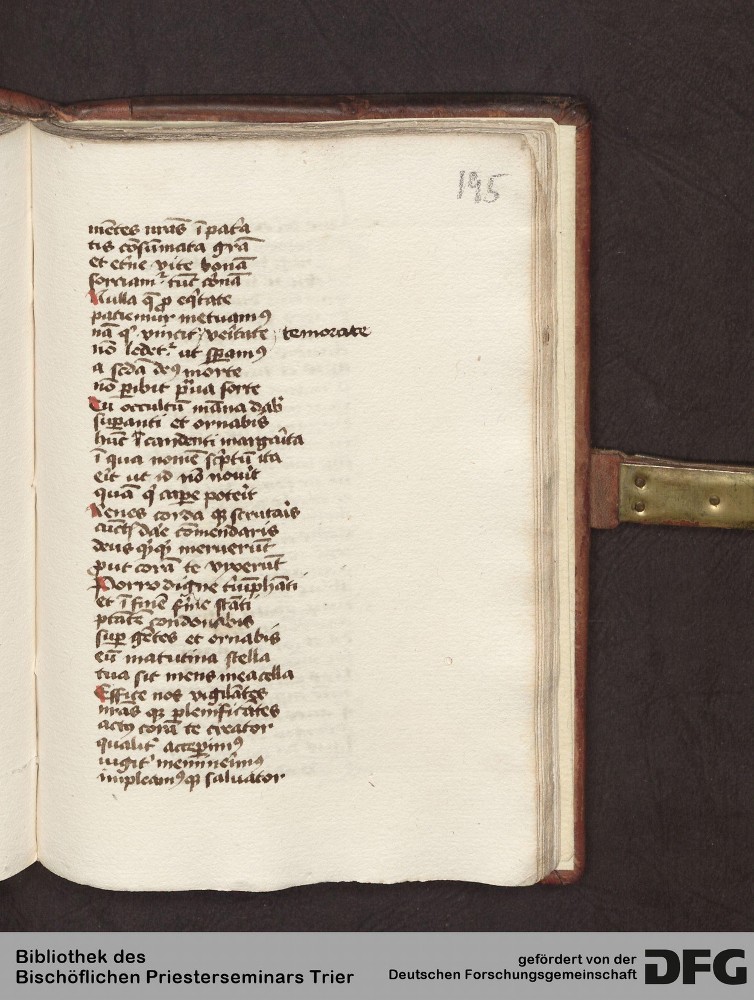 195
mētes nr̄as ī patīa
tis cōsūmata gr̄a
et et̄ne vite bonā
sorciam² tūc cēnā
Nulla q̄ ꝓ eq̄tate
patiemur metuamꝰ
nā qⁱ vincit veritate temorate
nō ledet² ut spamꝰ
a scd̄a deꝰ morte
nō ꝑibit
Cū occultū māna dab̄
suꝑanti et ornabis
hūc candenti margarita
ī qua nomē sc̄ptū ita
erit ut id nō nouit
quā qⁱ caꝑe poterit
Renes corda qꝫ scrutaris
cūctꝭ comendaris
deus meruerūt
ꝓut corā te vixerūt
Porro digne triūphāti
et ī finē stāti
ptātē condonabis
suꝑ gētes et ornabis
eū matutina stella
tua sit mens mea cella
Effice nos vigilātes
nr̄as qꝫ plenificātes
actꝰ corā te creator
qualit² acceperimꝰ
iugit² meminerimꝰ
impleamꝰ qꝫ saluator
Bibliothek des
Bischöflichen Priesterseminars Trier
gefördert von der
Deutschen Forschungsgemeinschaft
DFG